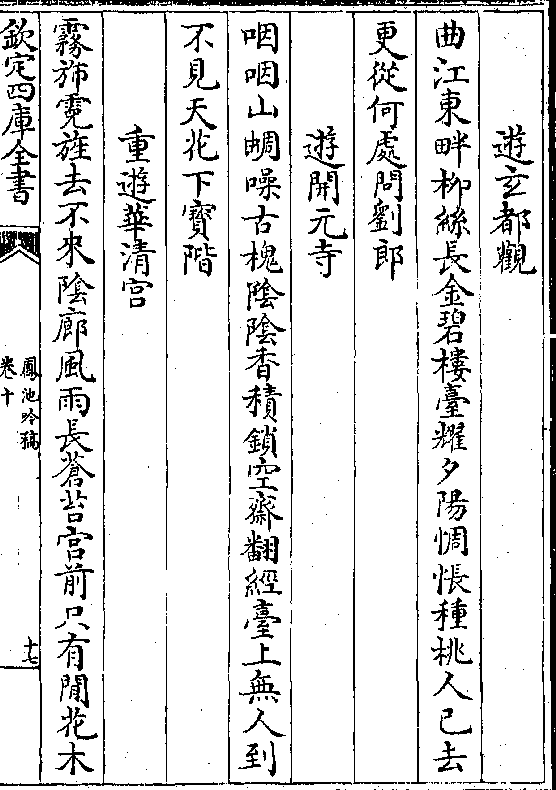 遊玄都觀
曲江東畔柳絲長金碧樓臺耀夕陽惆悵種桃人已去
更從何處問劉郎
遊開元寺
咽咽山蜩噪古槐陰陰香積鎖空齋翻經臺上無人到
不見天花下寶階
重遊華清宫
霧斾霓旌去不來陰廊風雨長蒼苔宫前只有閒花木
欽定四庫全書
鳳池吟稿
卷十
十七